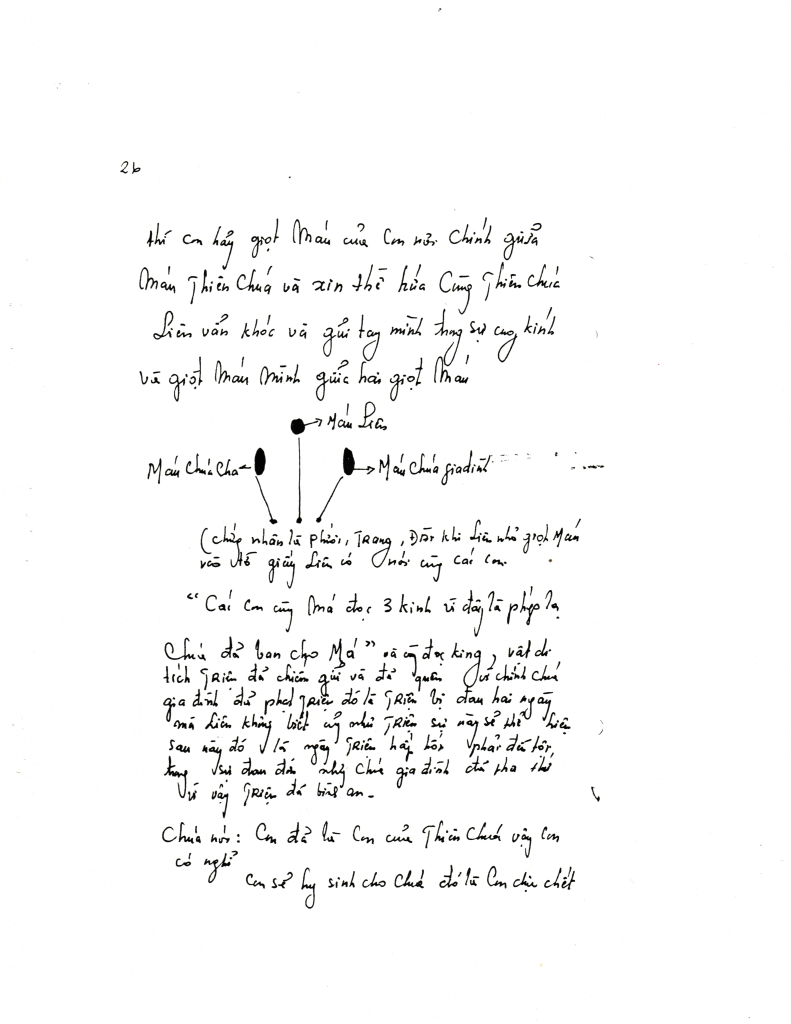 26
thì con hãy giọt Máu của Con nơi chính giữa
Máu Thiên Chúa và xin thề hứa Cùng Thiên Chúa
Liên vẫn khóc và gửi tay mình trong sự cung kính
và giọt Máu Mình giữa hai giọt Máu
Máu Liên
Máu Chúa Cha
Máu Chúa gia đình
(chứng nhân là Phước, TRang, Đài khi Liên nhỏ giọt Máu
vào giấy Liên có nói cùng các con.
"Các Con cùng Má đọc 3 kinh vì đây là phép lạ
Chúa đã ban cho Má" và cùng đọc king, vật di
tích TRiệu đã chiêm gửi và đã quên vì chính Chúa
gia đình đã phạt TRiệu đó là TRiệu bị đau hai ngày
mà Liên không biết cũng như TRiệu sự này sẽ thể hiện
sau này đó là ngày TRiệu hấp hối phải đền tội,
trong sự đau đớn nhưng Chúa gia đình đã tha thứ
vì vậy TRiệu đã bình an.
Chúa nói: Con đã là Con của Thiên Chúa vậy Con
có nghĩ
Con sẽ hy sinh cho Chúa đó là Con chịu chết